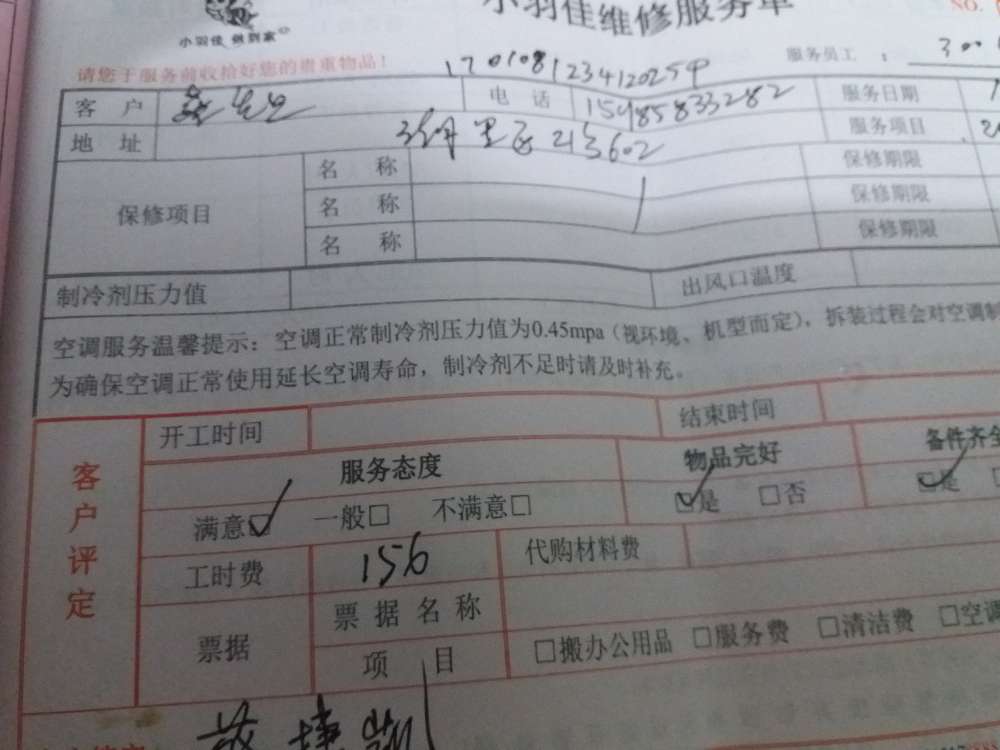 小羽佳维修服务单
NO.
小羽佳 做到家
请您于服务前收拾好您的贵重物品!
服务员工 :
170108123412025
客 户
电 话
15985833282
服务日期
地 址
21号602
服务项目
保修项目
名 称
保修期限
名 称
保修期限
名 称
保修期限
制冷剂压力值
出风口温度
空调服务温馨提示：空调正常制冷剂压力值为0.45mpa（视环境、机型而定），拆装过程会对空调制
为确保空调正常使用延长空调寿命，制冷剂不足时请及时补充。
客户评定
开工时间
结束时间
服务态度
物品完好
备件齐全
满意☑ 一般□ 不满意□
☑是 □否
☑是
工时费
156
代购材料费
票据
票 据 名 称
项 目
□搬办公用品 □服务费 □清洁费 □空调